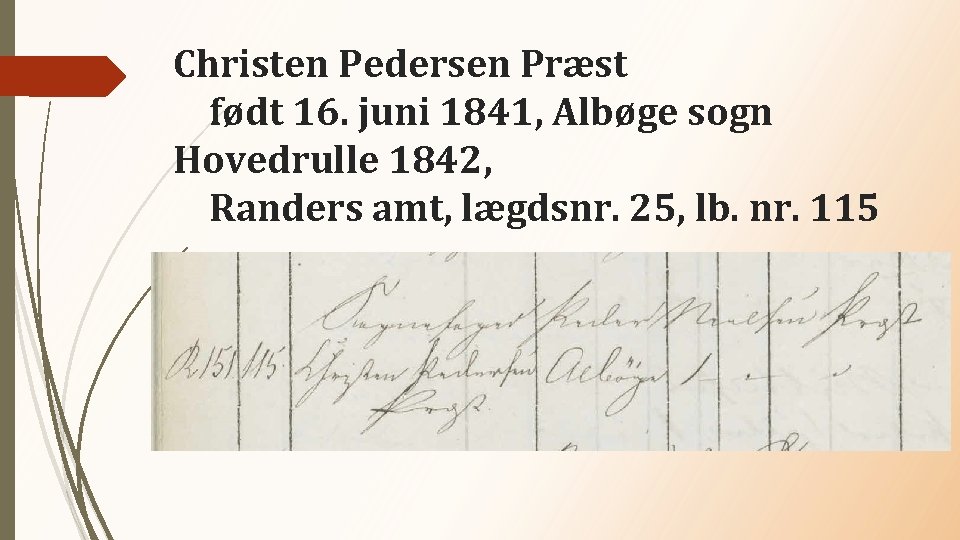 Christen Pedersen Præst
født 16. juni 1841, Albøge sogn
Hovedrulle 1842,
Randers amt, lægdsnr. 25, lb. nr. 115
Peder Nielsen Præst
R 151 115. Christen Pedersen Albøge 1 - - -
Præst.